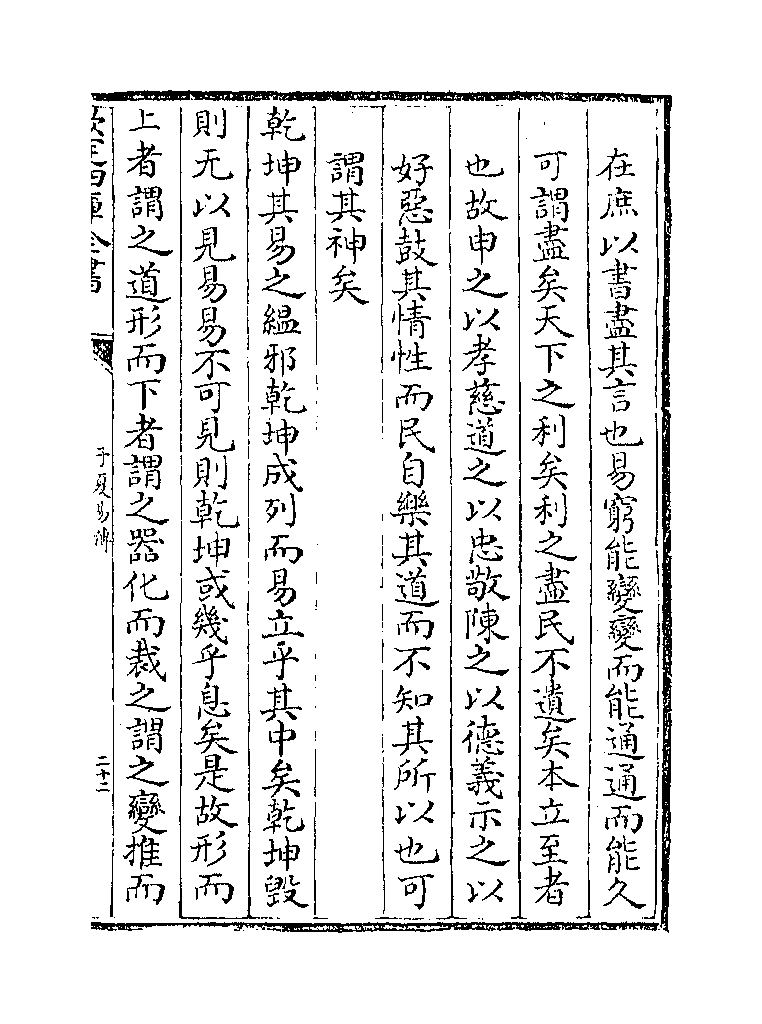 在庶以書盡其言也易窮能變變而能通通而能久
可謂盡矣天下之利矣利之盡民不遺矣本立至者
也故申之以孝慈道之以忠敬陳之以德義示之以
好惡鼓其情性而民自樂其道而不知其所以也可
謂其神矣
乾坤其易之緼邪乾坤成列而易立乎其中矣乾坤毀
則无以見易易不可見則乾坤或幾乎息矣是故形而
上者謂之道形而下者謂之器化而裁之謂之變推而
欽定四庫全書
子夏易傳
二十二